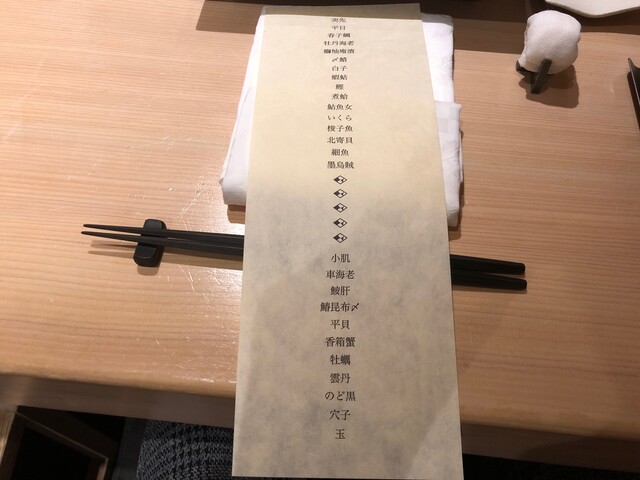 突先
平目
春子鯛
牡丹海老
鰤柚庵漬
〆鯖
白子
蝦蛄
鰹
煮蛤
鮎魚女
いくら
梭子魚
北寄貝
細魚
墨烏賊
小肌
車海老
鮟肝
鰆昆布〆
平貝
香箱蟹
牡蠣
雲丹
のど黒
穴子
玉